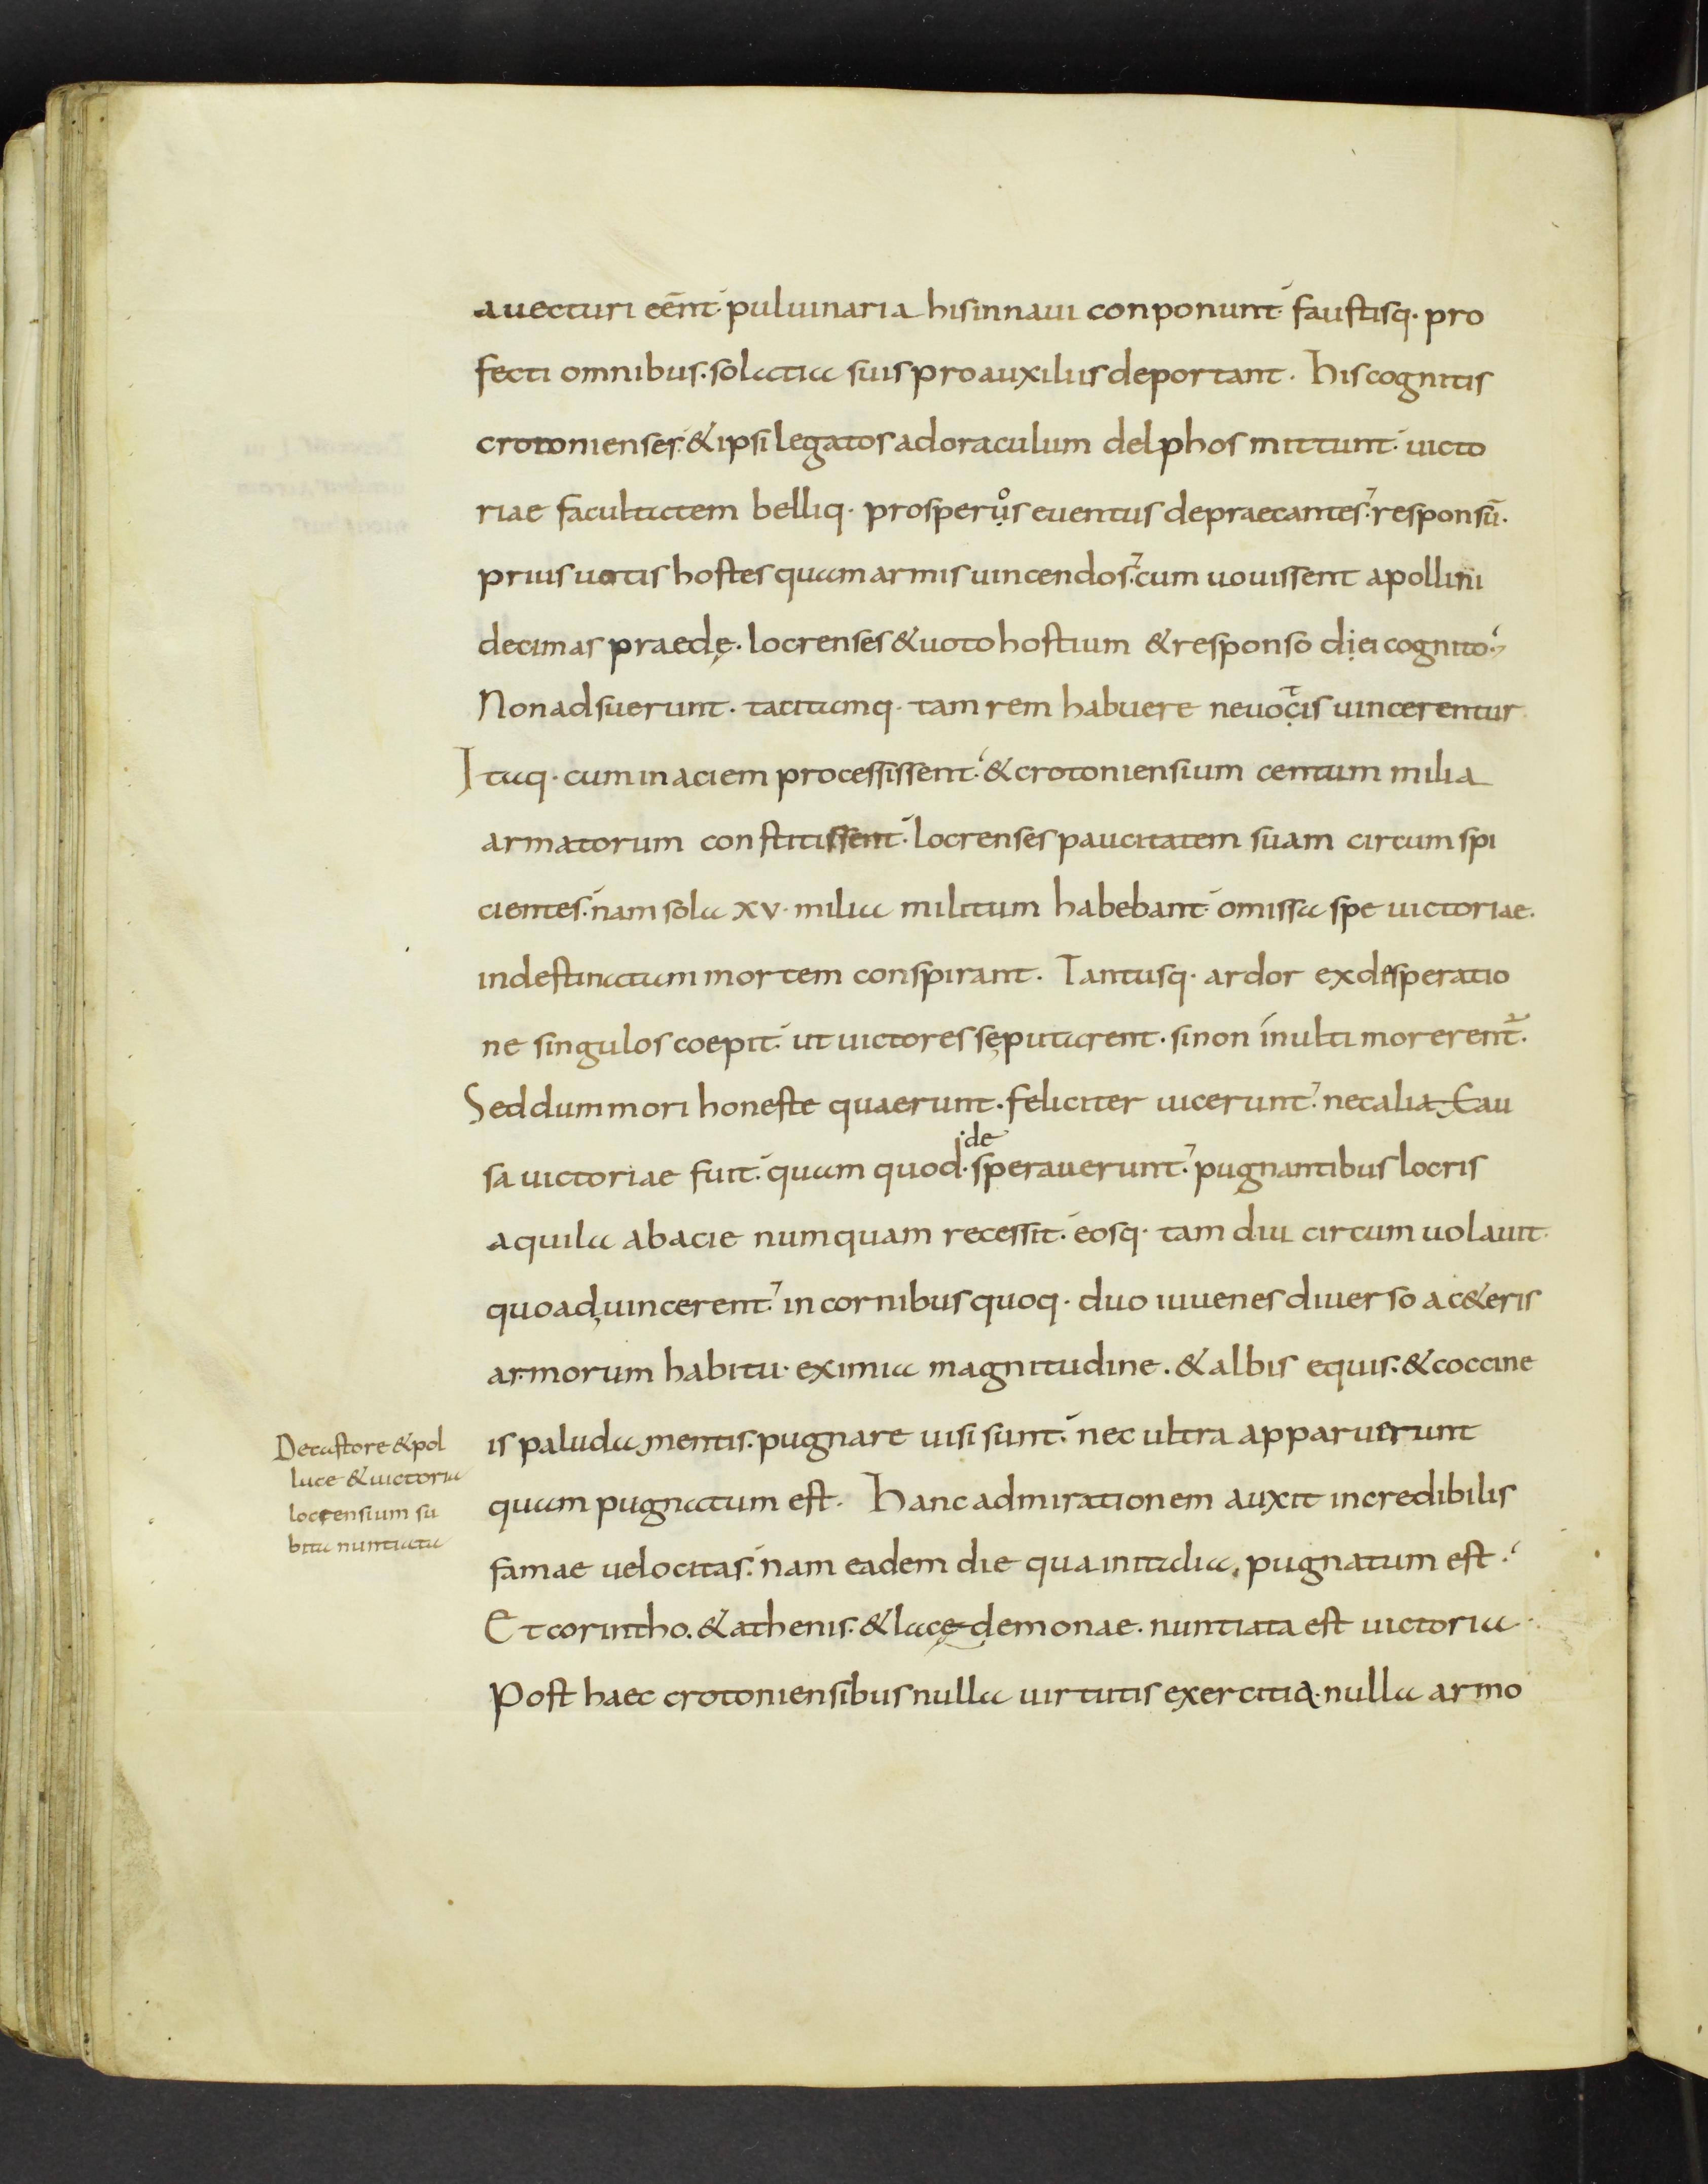 auecturi eēnt. puluinaria hisinnaui conponunt. faustisq. pro
fecti omnibus. solatia suis pro auxiliis deportant. His cognitis
crotonienses. & ipsi legatos ad oraculum delphos mittunt. uicto
riae facultatem belliq. prosperůs euentus depraecantes. responsū.
prius uotis hostes quam armis uincendos. cum uouissent apollini
decimas praedę. locrenses & uoto hostium & responso diei cognito.
Non adsuerunt. tacitamq. tam rem habuere ne uoctis uincerentur
Itaq. cum in aciem processissent. & crotoniensium centum milia
armatorum constitissent. locrenses paucitatem suam circumspi
cientes. nam sola xv. milia militum habebant. omissa spe uictoriae.
in destinatam mortem conspirant. Tantusq. ardor ex desperatio
ne singulos coepit. ut uictores se putarent. si non inulti morerent̄.
Sed dum mori honeste quaerunt. feliciter uicerunt. nec alia cau
sa uictoriae fuit. quam quod desperauerunt. pugnantibus locris
aquila ab acie numquam recessit. eosq. tam diu circumuolauit.
quoad uincerent. in cornibus quoq. duo iuuenes diuerso a c&eris
armorum habitu. eximia magnitudine. & albis equis. & coccine
is paludamentis. pugnare uisi sunt. nec ultra apparuerunt
quam pugnatum est. Hanc admirationem auxit incredibilis
famae uelocitas. nam eadem die qua in italia, pugnatum est.
Et corintho. & athenis. & lacedemonae. nuntiata est uictoria.
Post haec crotoniensibus nulla uirtutis exercitia. nulla armo
De castore & pol
luce & uictoria
locrensium su
bita nuntiata